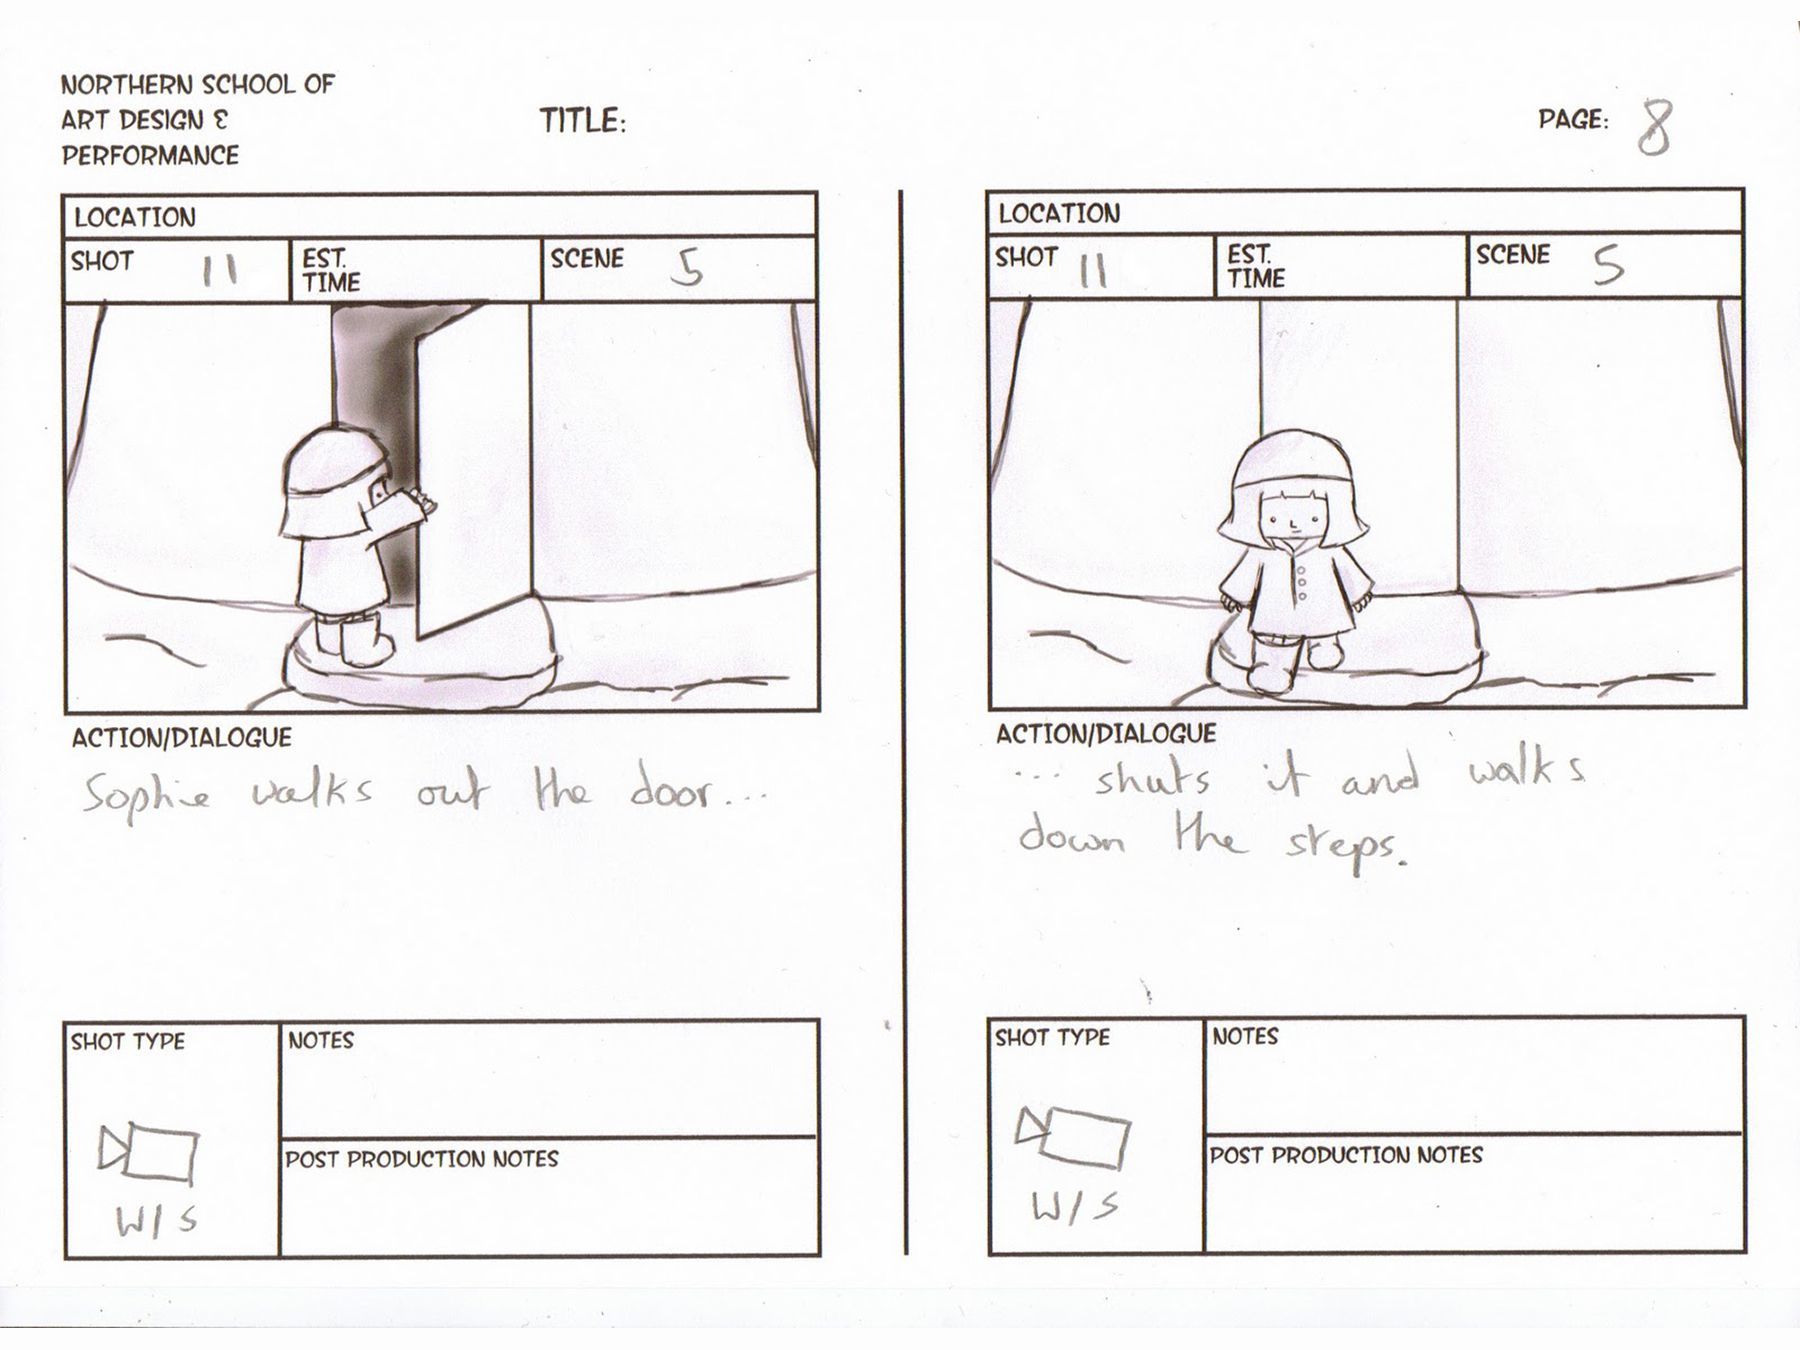 NORTHERN SCHOOL OF
ART DESIGN &
PERFORMANCE
TITLE:
PAGE: 8
LOCATION
SHOT 11
EST.
TIME
SCENE 5
ACTION/DIALOGUE
Sophie walks out the door...
SHOT TYPE
W/S
NOTES
POST PRODUCTION NOTES
LOCATION
SHOT 11
EST.
TIME
SCENE 5
ACTION/DIALOGUE
... shuts it and walks
down the steps.
SHOT TYPE
W/S
NOTES
POST PRODUCTION NOTES